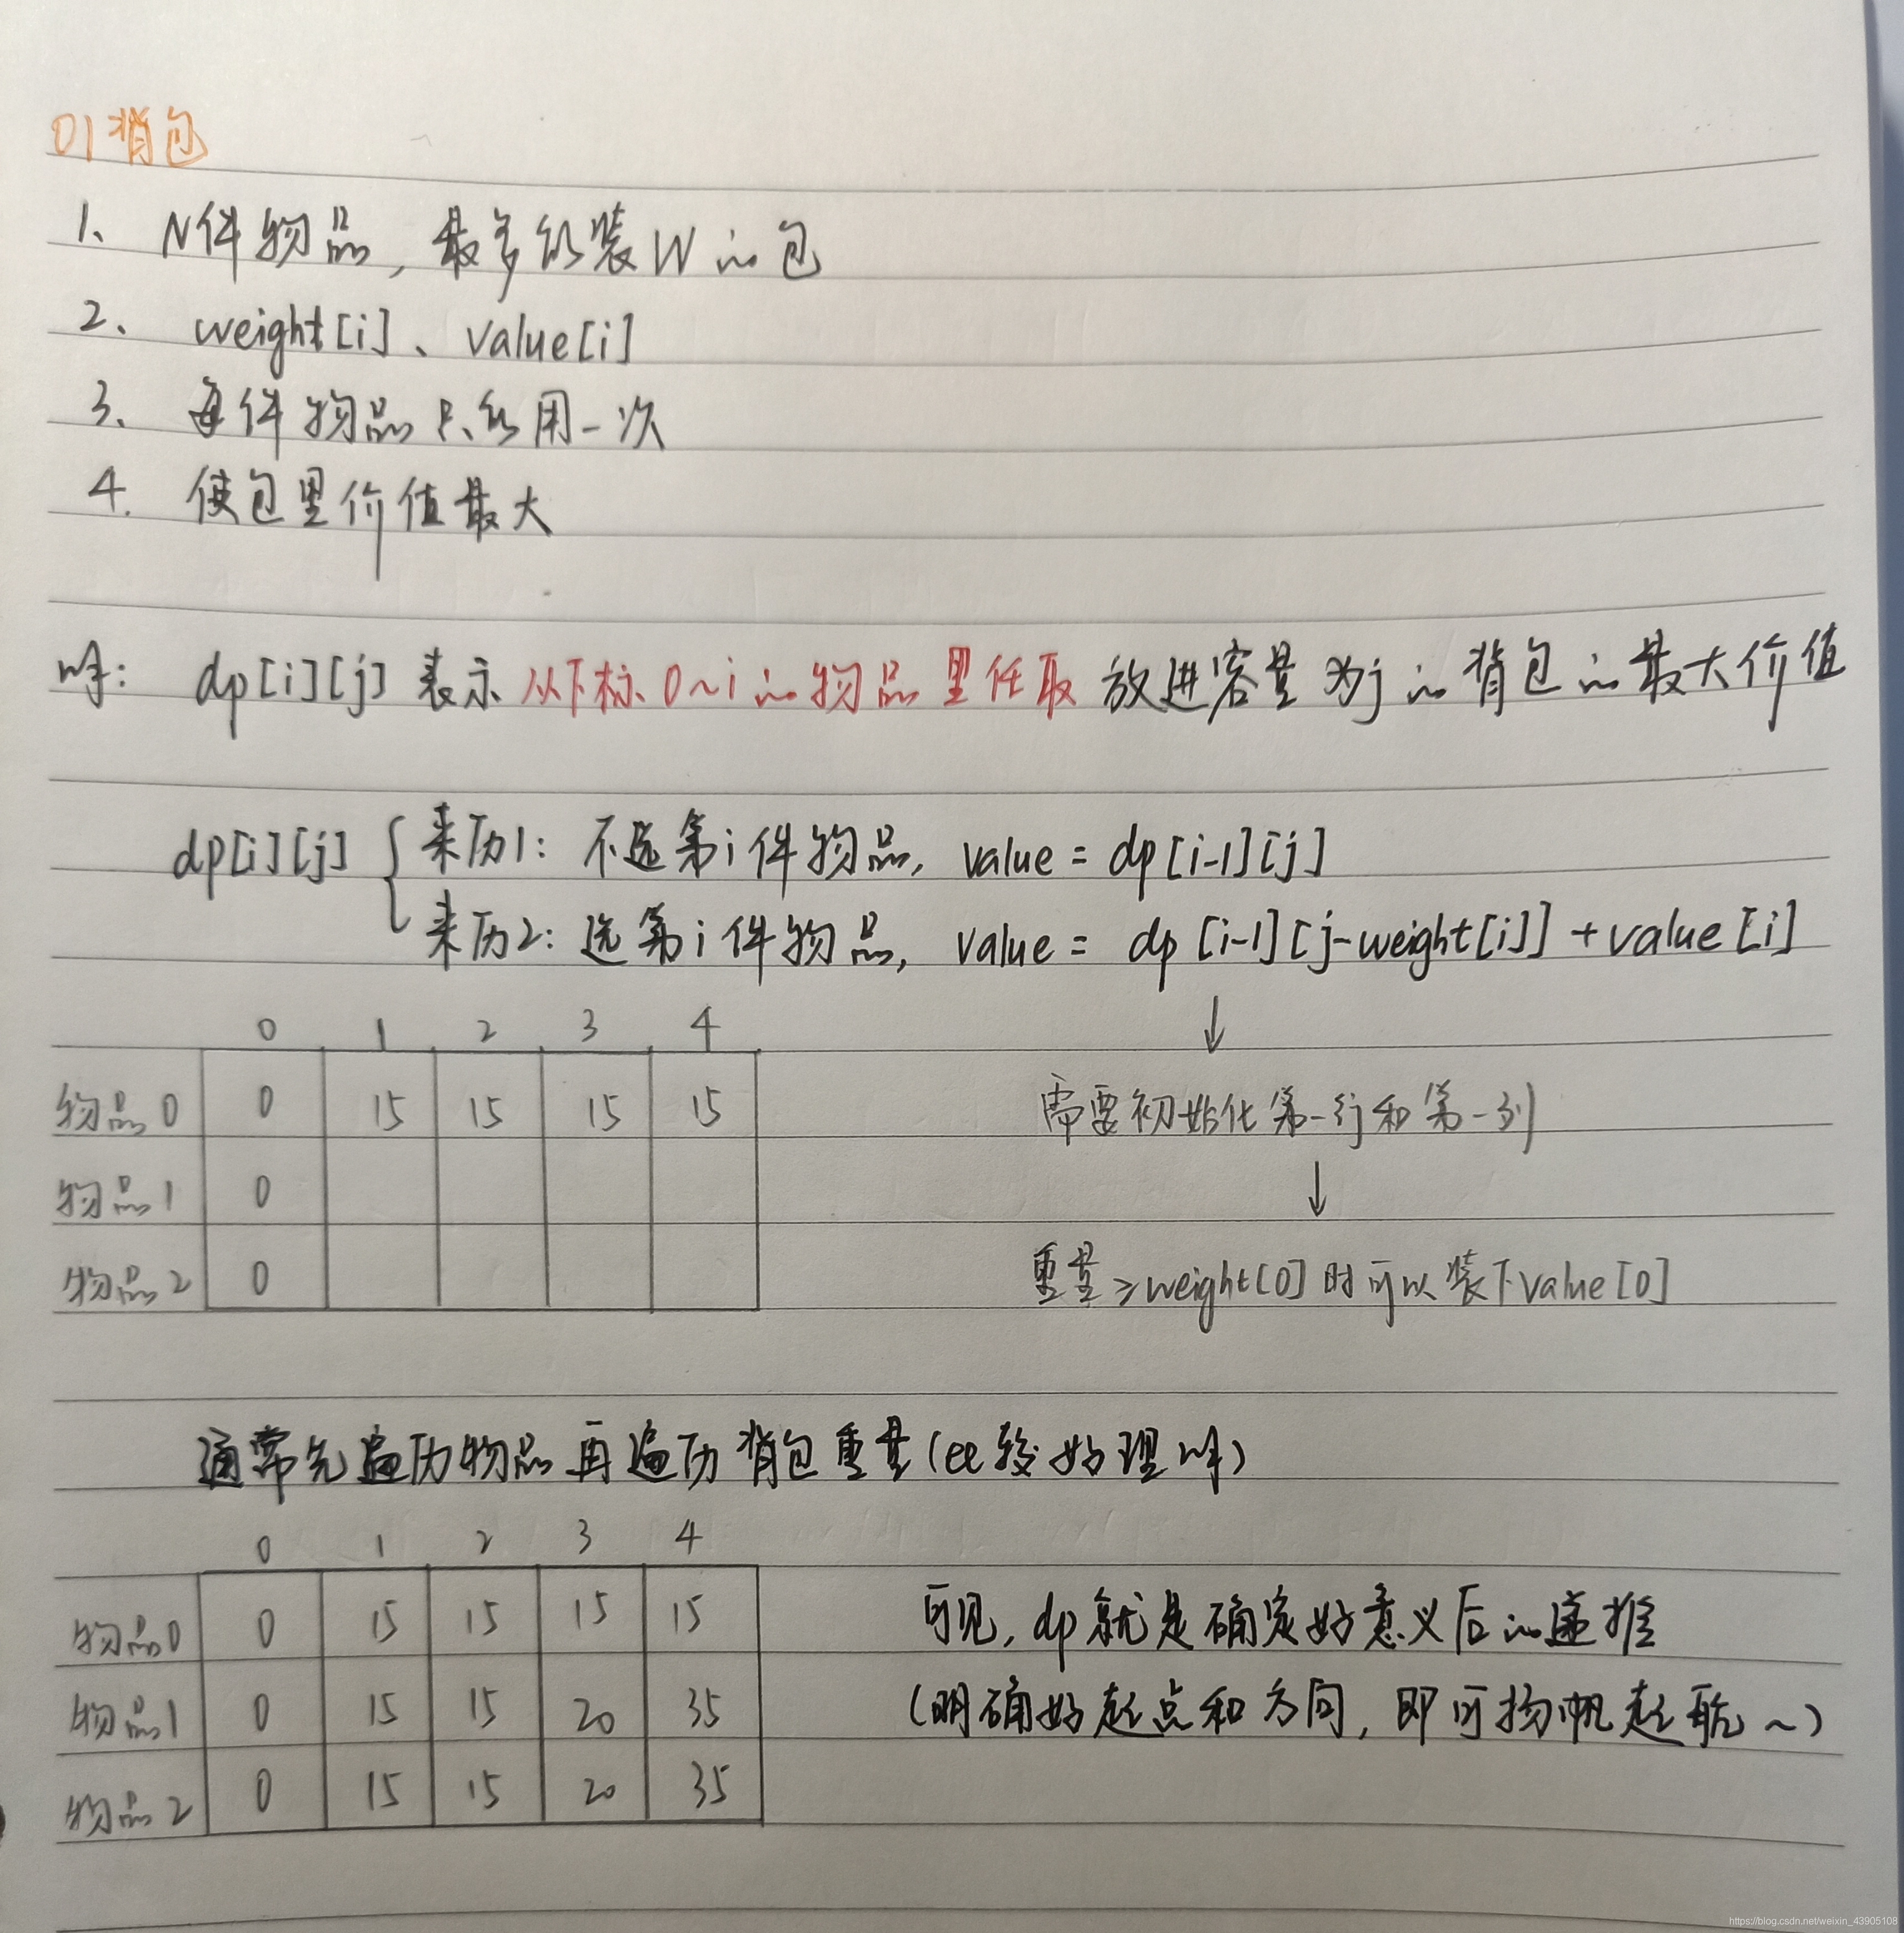 01背包
1、N件物品，最多能装W的包
2、weight[i]、value[i]
3、每件物品只能用一次
4. 使包里价值最大
解：dp[i][j]表示从下标0~i的物品里任取放进容量为j的背包的最大价值
dp[i][j] { 来历1：不选第i件物品，value = dp[i-1][j]
来历2：选第i件物品，value = dp[i-1][j-weight[i]]+value[i]
↓
0 1 2 3 4
物品0 0 15 15 15 15
需要初始化第一行和第一列
↓
物品1 0
物品2 0
重量≥weight[0]时可以装下value[0]
通常先遍历物品再遍历背包重量(比较好理解)
0 1 2 3 4
物品0 0 15 15 15 15
可见，dp就是确定好意义后的递推
物品1 0 15 15 20 35
(明确好起点和方向，即可扬帆起航~)
物品2 0 15 15 20 35
https://blog.csdn.net/weixin_43905108